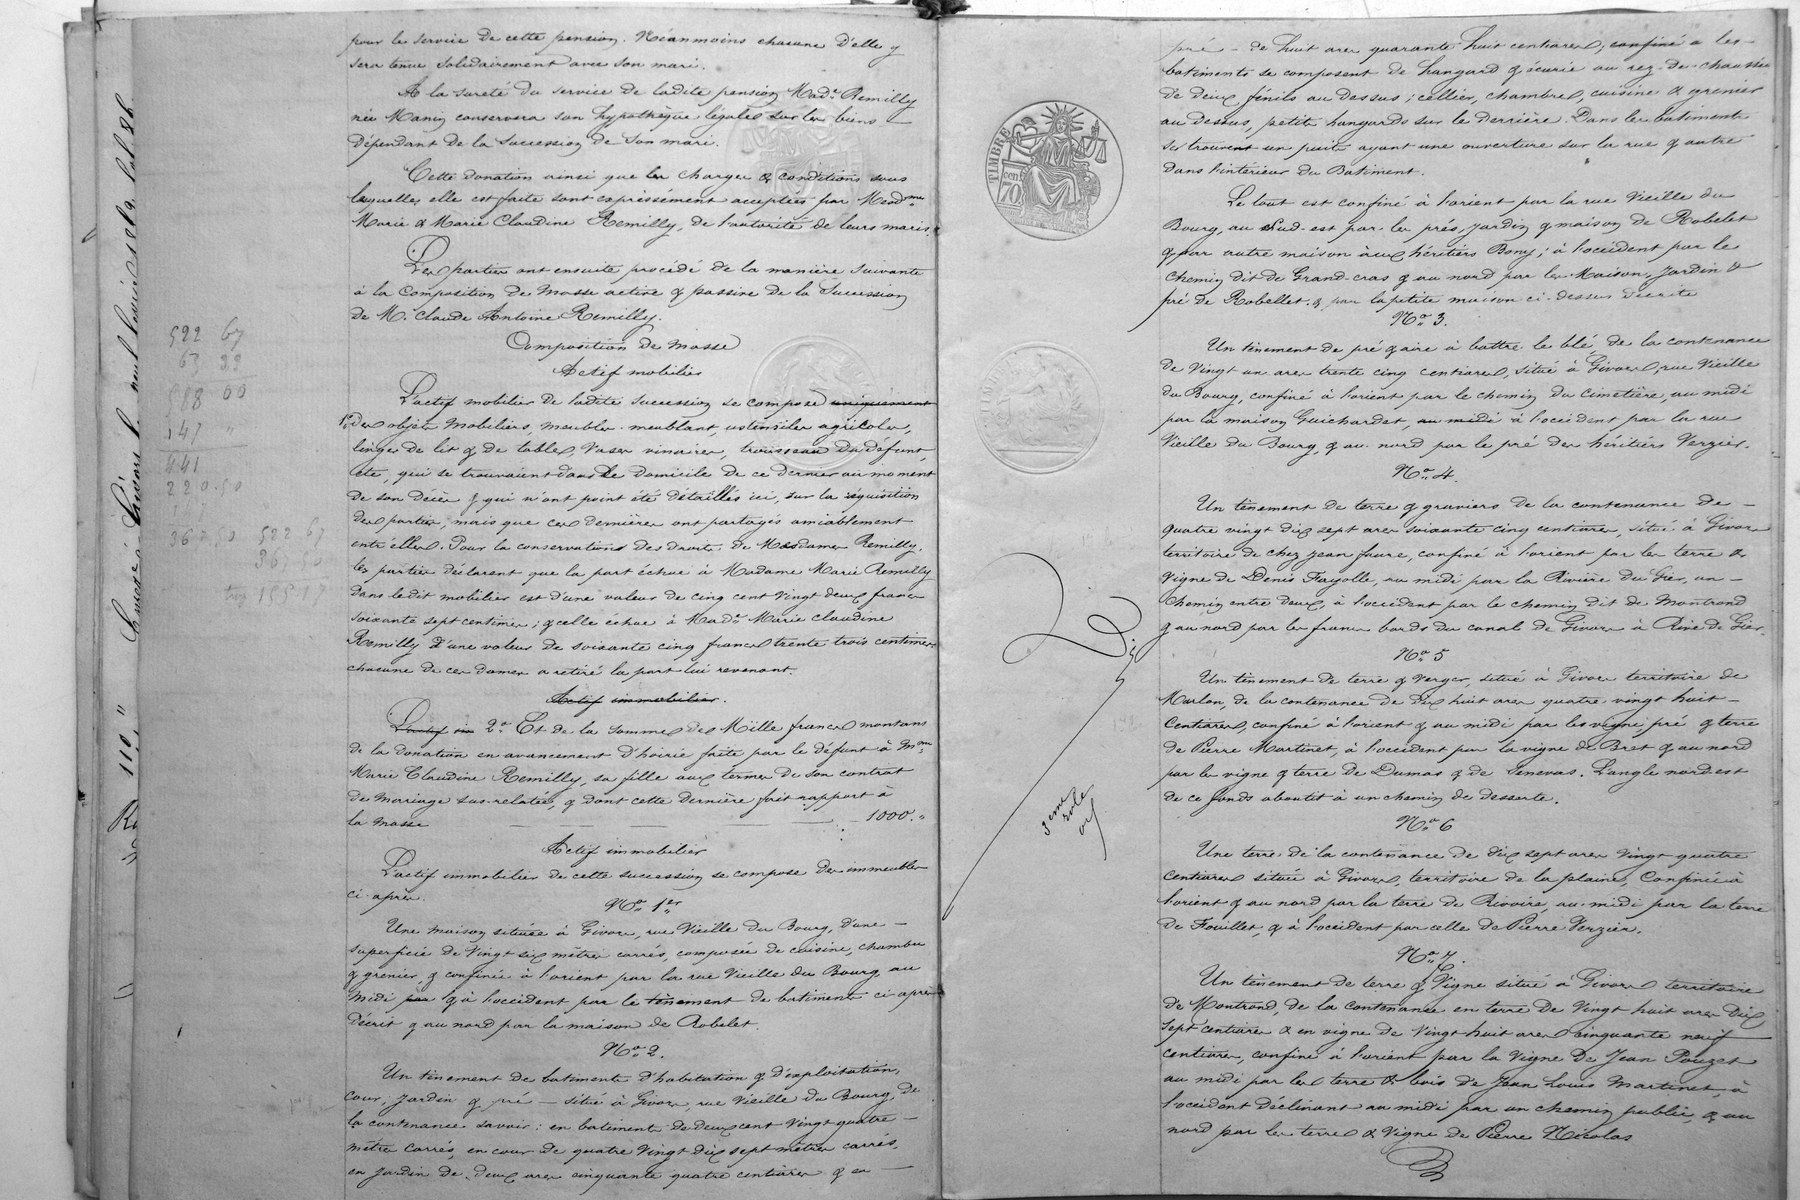 pour le service de cette pension. Néanmoins chacune d'elle y
sera tenue solidairement avec son mari.
A la sureté du service de ladite pension Made Remilly
née Manin conservera son hypothèque légale sur les biens —
dépendant de la succession de son mari.
Cette donation ainsi que les charges & conditions sous
lesquelles elle est faite sont expressément acceptées par Mesdmes
Marie & Marie Claudine Remilly, de l'autorité de leurs maris.
Les parties ont ensuite procédé de la manière suivante
à la composition de masse active & passive de la succession
de M. Claude Antoine Remilly.
Composition de masse
Actif mobilier
L'actif mobilier de ladite succession se compose uniquement
1° des objets mobiliers, meubles meublant, ustensiles agricoles,
linges de lit & de table, vases vinaires, trousseau du défunt,
etc, qui se trouvaient dans le domicile de ce dernier au moment
de son décès & qui n'ont point été détaillés ici, sur la réquisition
des parties, mais que ces dernières ont partagés amiablement
entr'elles. Pour la conservation des droits de Mesdames Remilly,
les parties déclarent que la part échue à Madame Marie Remilly
dans ledit mobilier est d'une valeur de cinq cent vingt deux francs
soixante sept centimes; & celle échue à Made Marie Claudine
Remilly d'une valeur de soixante cinq francs trente trois centimes
chacune de ces dames a retiré la part lui revenant.
Actif immobilier.
L'actif im 2° Et de la somme de Mille francs montant
de la donation en avancement d'hoirie faite par le défunt à Mme
Marie Claudine Remilly, sa fille aux termes de son contrat
de mariage sus-relaté, & dont cette dernière fait rapport à
la masse — 1000. "
Actif immobilier
L'actif immobilier de cette succession se compose des immeubles
ci après.
No 1er
Une maison située à Givors, rue Vieille du Bourg, d'une —
superficie de Vingt six mètres carrés, composée de cuisine, chambre
& grenier & confinée à l'orient par la rue Vieille du Bourg, au
midi par & à l'occident par le tènement de batiments ci après
décrit & au nord par la maison de Robelet.
No 2.
Un tènement de batiments d'habitation & d'exploitation,
cour, jardin & pré — situé à Givors, rue Vieille du Bourg, de
la contenance savoir: en batiments de deux cent vingt quatre —
mètres carrés, en cour de quatre vingt dix sept mètres carrés,
en jardin de deux ares cinquante quatre centiares & en —
522 67
65 33
588 00
147 "
441
220.50
147
367.50 522 67
367 50
155 17
110 "
TIMBRE
70 cent
3eme
rôle
pré — de huit ares quarante huit centiares; confiné a les —
batiments se composent de hangard & écurie au rez-de-chaussée
de deux fénils au dessus; cellier, chambre, cuisine & grenier
au dessus, petits hangards sur le derrière. Dans les batiments
se trouvent un puits ayant une ouverture sur la rue & autre
dans l'intérieur du Batiment.
Le tout est confiné à l'orient par la rue Vieille du
Bourg, au Sud-est par les prés, jardin & maison de Robelet
& par autre maison aux héritiers Bony; à l'occident par le
chemin dit de Grand-cras & au nord par les Maison, Jardin &
pré de Robellet. &, par la petite maison ci-dessus décrite
No 3.
Un tènement de pré & aire à battre le blé, de la contenance
de Vingt un ares trente cinq centiares, situé à Givors, rue Vieille
du Bourg, confiné à l'orient par le chemin du Cimetière, au midi
par la maison Guichardet, au midi à l'occident par la rue
Vieille du Bourg, & au nord par le pré des héritiers Verzier.
No 4.
Un tènement de terre & graviers de la contenance de —
quatre vingt dix sept ares soixante cinq centiares, situé à Givors
territoire de chez Jean Faure, confiné à l'orient par les terre &
Vigne de Denis Fayolle, au midi par la Rivière du Gier, un —
chemin entre deux, à l'occident par le chemin dit de Montrond
& au nord par les francs bords du canal de Givors à Rive de Gier.
No 5
Un tènement de terre & verger, situé à Givors territoire de
Marlon, de la contenance de dix huit ares quatre vingt huit —
Centiares, confiné à l'orient & au midi par les vigne, pré & terre
de Pierre Martinet, à l'occident par la vigne de Bret & au nord
par les vigne & terre de Dumas & de Senevas. L'angle nord-est
de ce fonds aboutit à un chemin de desserte.
No 6
Une terre de la contenance de dix sept ares Vingt quatre
centiares située à Givors, territoire de la plaine, Confinée à
l'orient & au nord par la terre de Rivoire, au midi par la terre
de Fouillet, & à l'occident par celle de Pierre Verzier.
No 7.
Un tènement de terre & Vigne situé à Givors territoire
de Montrond, de la contenance en terre de Vingt huit ares dix
sept centiares & en vigne de Vingt huit ares cinquante neuf
centiares, confiné à l'orient par la Vigne de Jean Pouzet
au midi par les terre & bois de Jean Louis Martinet, à
l'occident déclinant au midi par un chemin public, & au
nord par les terre & Vigne de Pierre Nicolas